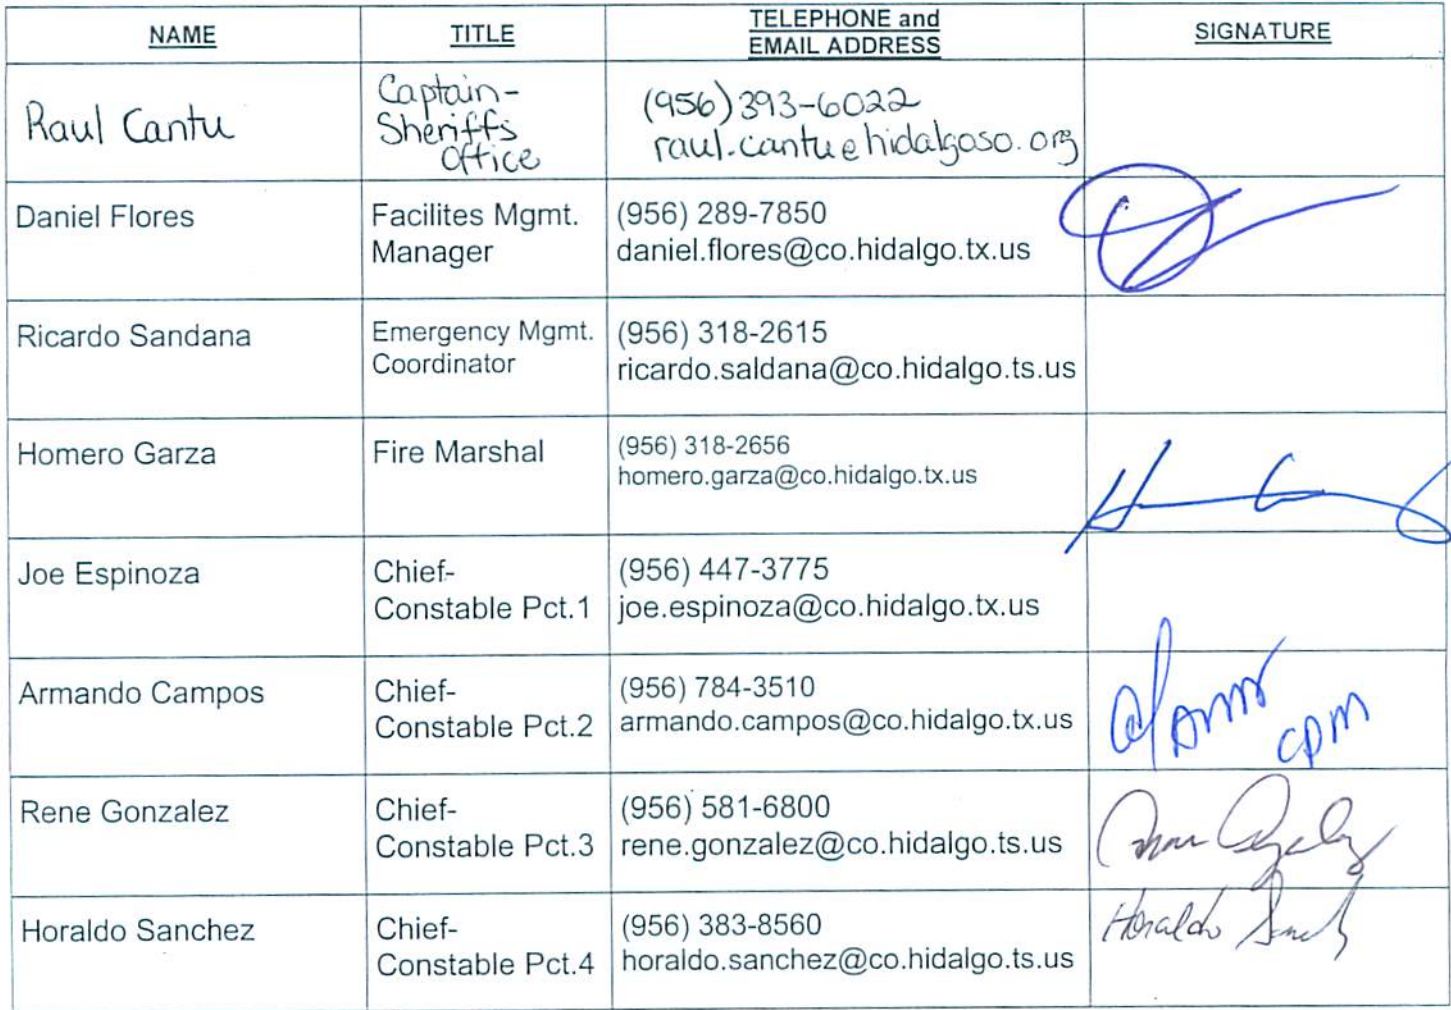 NAME
TITLE
TELEPHONE and
EMAIL ADDRESS
SIGNATURE
Raul Cantu
Captain-
Sheriffs
Office
(956) 393-6022
raul.cantu@hidalgoso.org
Daniel Flores
Facilites Mgmt.
Manager
(956) 289-7850
daniel.flores@co.hidalgo.tx.us
Ricardo Sandana
Emergency Mgmt.
Coordinator
(956) 318-2615
ricardo.saldana@co.hidalgo.ts.us
Homero Garza
Fire Marshal
(956) 318-2656
homero.garza@co.hidalgo.tx.us
Joe Espinoza
Chief-
Constable Pct.1
(956) 447-3775
joe.espinoza@co.hidalgo.tx.us
Armando Campos
Chief-
Constable Pct.2
(956) 784-3510
armando.campos@co.hidalgo.tx.us
CPM
Rene Gonzalez
Chief-
Constable Pct.3
(956) 581-6800
rene.gonzalez@co.hidalgo.ts.us
Horaldo Sanchez
Chief-
Constable Pct.4
(956) 383-8560
horaldo.sanchez@co.hidalgo.ts.us
Horaldo